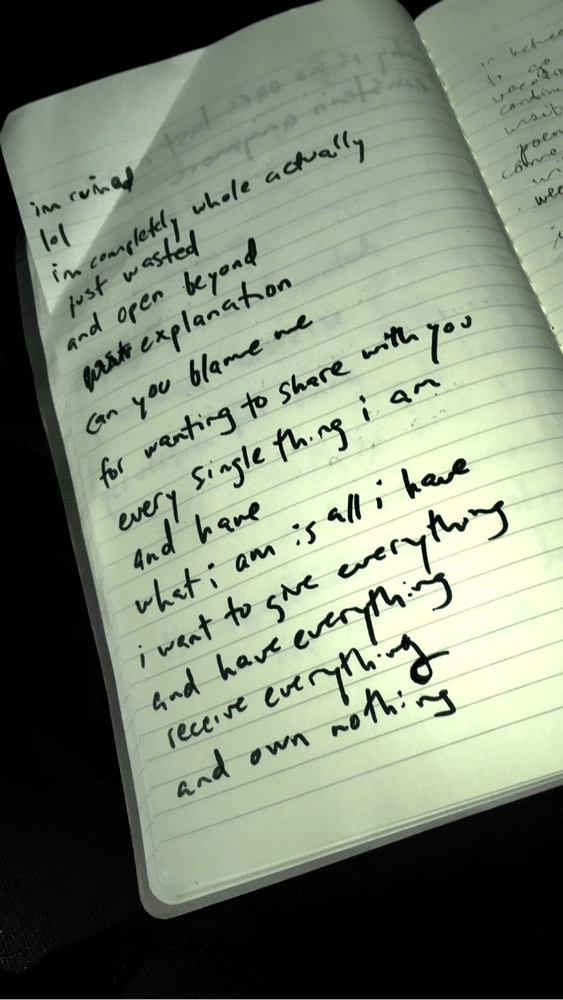 im ruined
lol
im completely whole actually
just wasted
and open beyond
explanation
can you blame me
for wanting to share with you
every single thing i am
and have
what i am is all i have
i want to give everything
and have everything
receive everything
and own nothing
in between
to go
vacation
poem
come